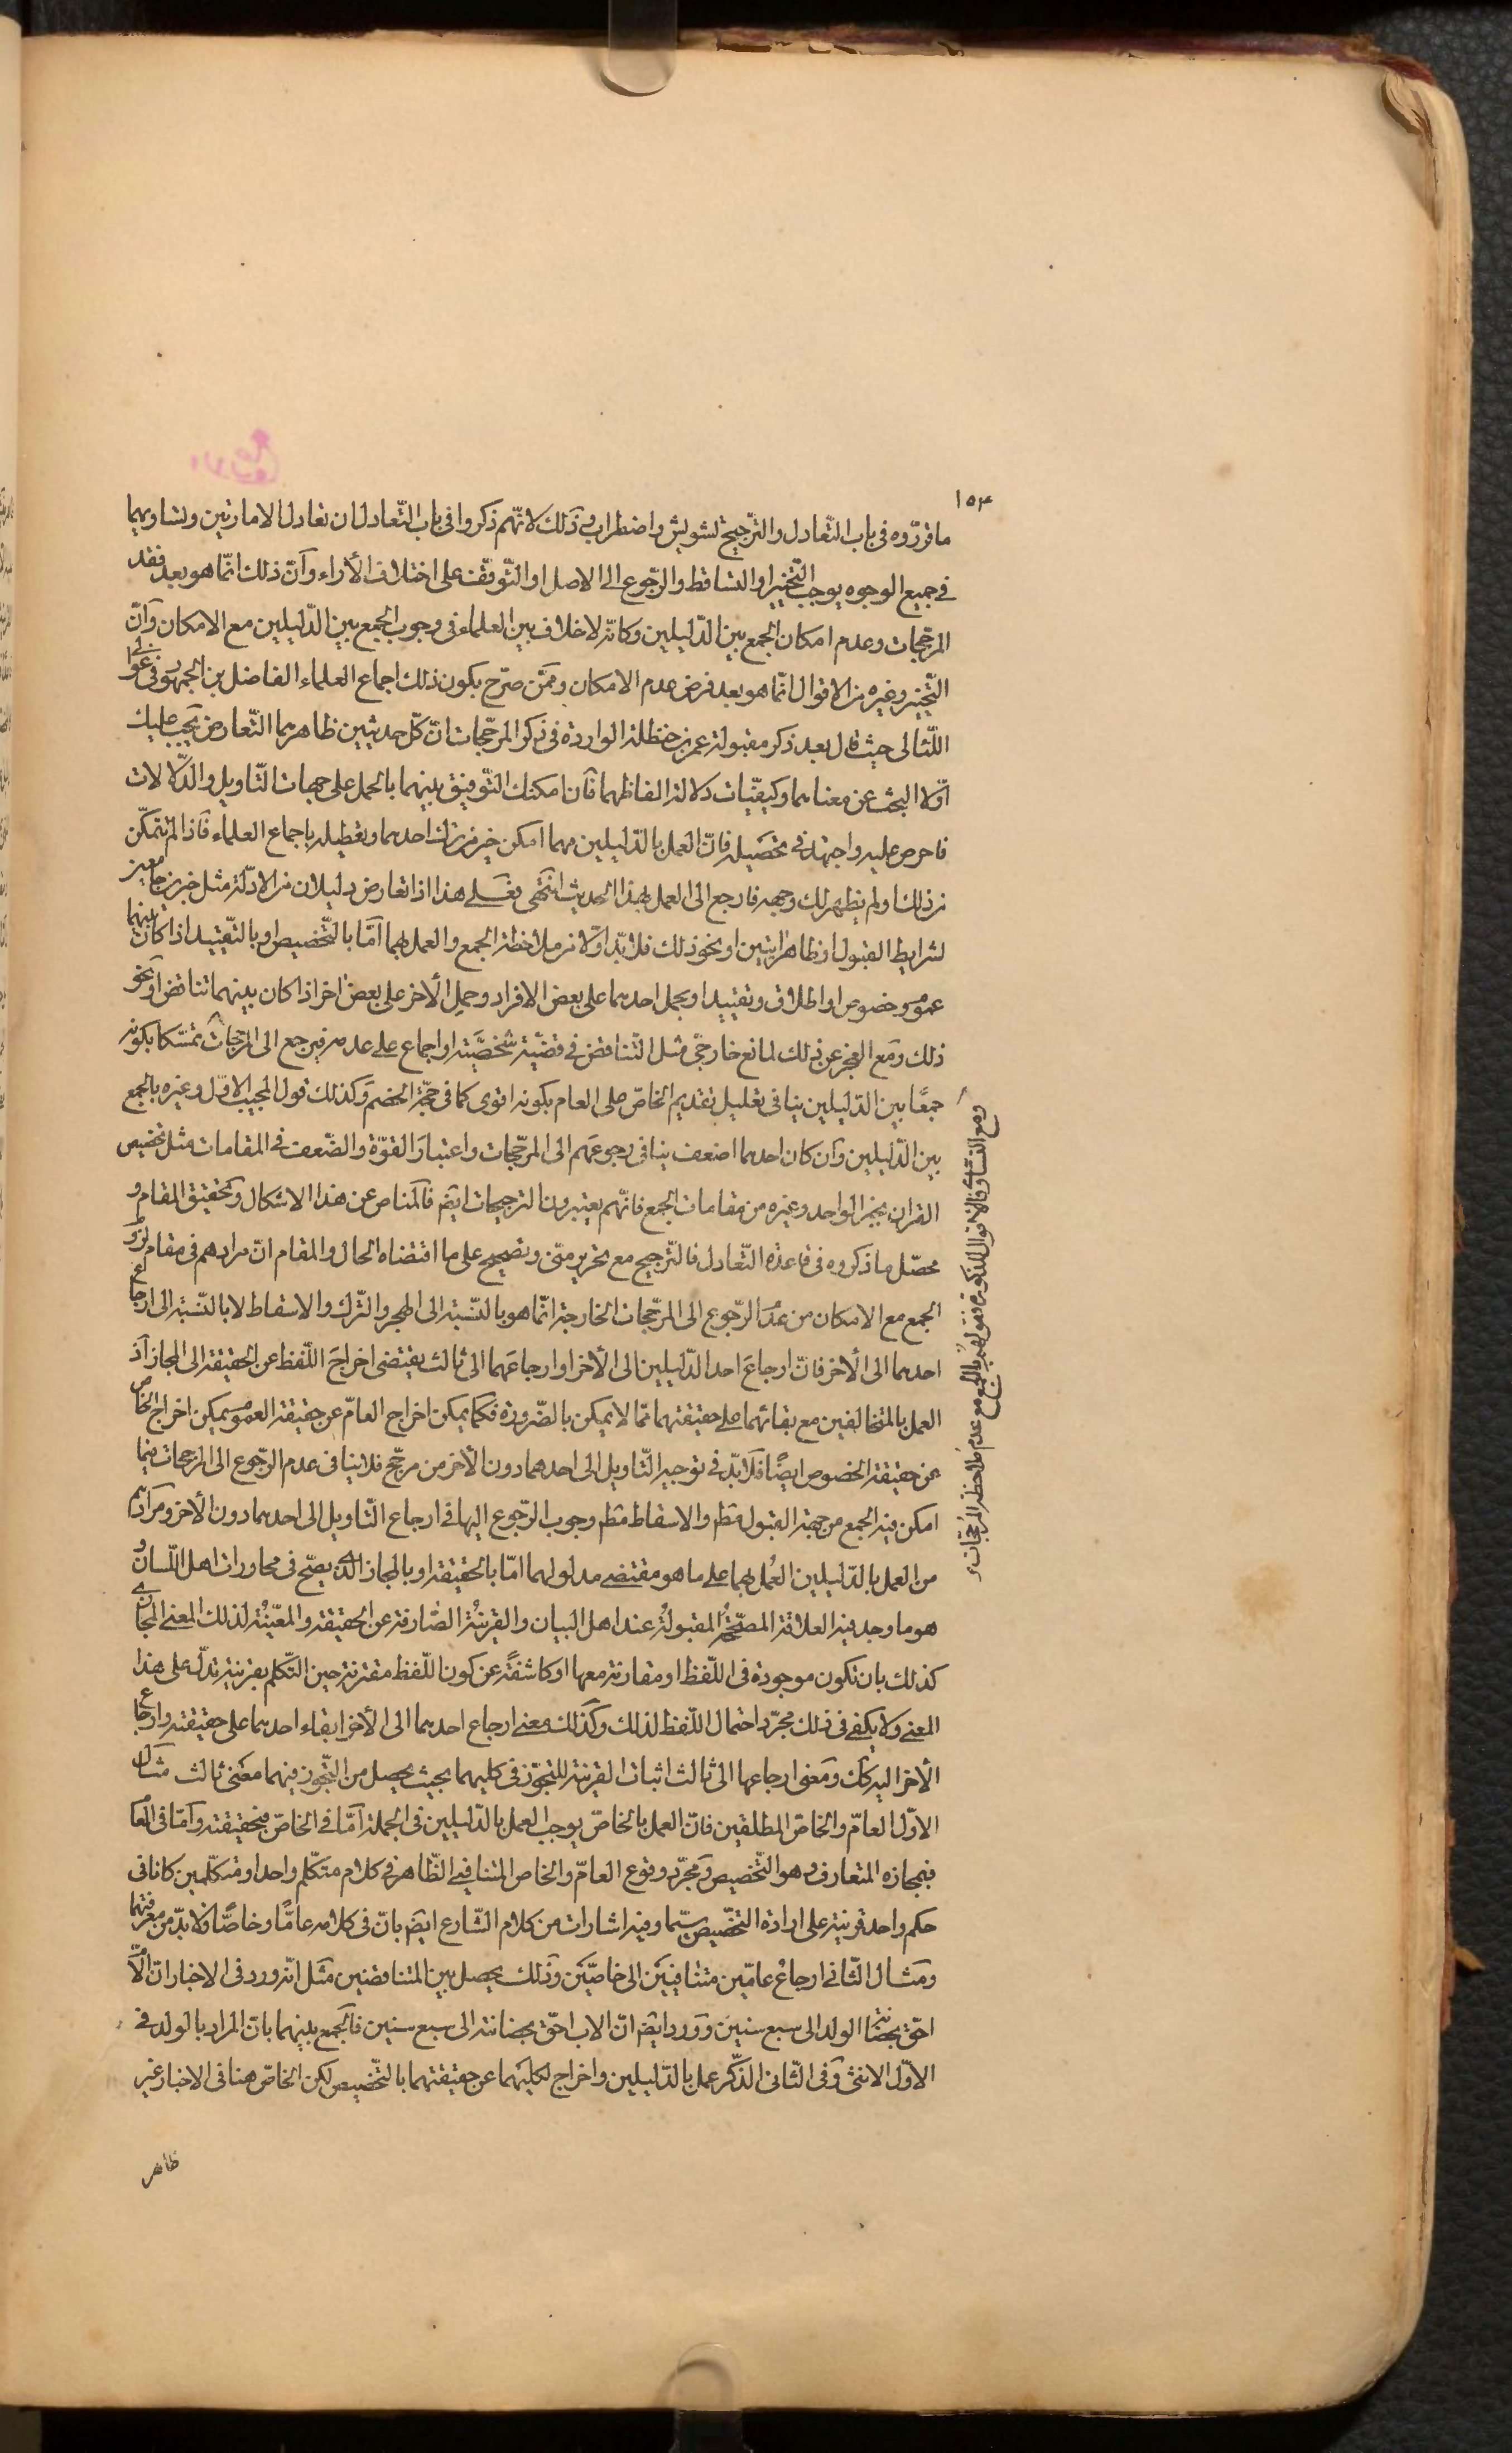 ١٥٣
ما قرّروه فى باب التّعادل والتّرجيح تشويش واضطراب وذلك لانّهم ذكروا فى باب التّعادل ان تعادل الامارتين وتساويهما
فى جميع الوجوه يوجب التّخيير او التساقط والرّجوع الى الاصل او التّوقّف على اختلاف الأراء وآنّ ذلك انّما هو بعد فقد
المرجّحات وعدم امكان الجمع بين الدّليلين وكانّه لا خلاف بين العلماء فى وجوب الجمع بين الدّليلين مع الامكان وآنّ
التّخيير وغيره من الاقوال انّما هو بعد فرض عدم الامكان وممّن صرّح بكون ذلك اجماع العلماء الفاضل بن الجمهور فى عوالى
اللّئالى حيث قال بعد ذكر مقبولة عمر بن حنظلة الواردة فى ذكر المرجّحات انّ كلّ حديثين ظاهرهما التّعارض يجب عليك
اوّلا البحث عن معناهما وكيفيّات دلالة الفاظهما فآن امكنك التّوفيق بينهما بالحمل على جهات التّاويل والدّلالات
فاحرص عليه واجتهد فى تحصيله فانّ العمل بالدّليلين مهما امكن خير من ترك احدهما وتعطيله باجماع العلماء فآذا لم تتمكّن
من ذلك او لم يظهر لك وجهه فارجع الى العمل بهذا الحديث انتهى فعلى هذا اذا تعارض دليلان من الادلّة مثل خبرين جامعين
لشرايط القبول او ظاهر ايتين او نحو ذلك فلا بدّ اوّلا من ملاحظة الجمع والعمل بهما امّا بالتّخصيص او بالتّقييد اذا كان بينهما
عموم وخصوص او اطلاق وتقييد او بحمل احدهما على بعض الافراد وحمل الأخر على بعض اخر اذا كان بينهما تناقض او نحو
ذلك ومَع العجز عن ذلك لمانع خارجىّ مثل التّناقض فى قضيّة شخصيّة او اجماع على عدمه فيرجع الى المرجّحات تمسّكا بكونه
جمعًا بين الدّليلين ينافى تعليل تقديم الخاصّ على العام بكونه اقوى كما فى حجّة الخصم وكذلك قول المجيب الاوّل وغيره بالجمع
بين الدّليلين وآن كان احدهما اضعف ينافى رجوعهم الى المرجّحات واعتبار القوّة والضّعف فى المقامات مثل تخصيص
القران بخبر الواحد وغيره من مقامات الجمع فانّهم يعتبرون الترجيحات ايضم فآلمناص عن هذا الاشكال وتحقيق المقام و
محصّل ما ذكروه فى قاعدة التّعادل فالتّرجيح مع تحرير منّى وتصحيح على ما اقتضاه الحال والمقام انّ مرادهم فى مقام لزوم
الجمع مع الامكان من عدم الرّجوع الى المرجّحات الخارجة انّما هو بالنّسبة الى الهجر والتّرك والاسقاط لا بالنّسبة الى ارجاع
احدهما الى الأخر فانّ ارجاعَ احد الدّليلين الى الأخر او ارجاعَهما الى ثالث يقتضى اخراجَ اللّفظ عن الحقيقة الى المجاز آذ
العمل بالمتخالفين مع بقائهما على حقيقتهما ممّا لا يمكن بالضّرورة فكما يمكن اخراج العامّ عن حقيقة العموم يمكن اخراج الخاص
عن حقيقة الخصوص ايضًا فلا بدّ فى توجيه التّاويل الى احدهما دون الأخر من مرجّح فلا ينافى عدم الرّجوع الى المرجحات فيما
امكن فيه الجمع من جهة القبول مطم والاسقاط مطم وجوب الرّجوع اليها فى ارجاع التّاويل الى احدهما دون الأخر ومرادهم
من العمل بالدّليلين العمل بهما على ما هو مقتضى مدلولهما امّا بالحقيقة او بالمجاز الّذى يصحّ فى محاورات اهل اللّسان و
هو ما وجد فيه العلاقة المصحّحة المقبولة عند اهل البيان والقرينة الصّارفة عن الحقيقة والمعيّنة لذلك المعنى المجازى
كذلك بان تكون موجودة فى اللّفظ او مقارنة معها او كاشفةً عن كون اللّفظ مقترنة حين التّكلم بقرينة تدلّ على هذا
المعنى ولا يكفى فى ذلك مجرّد احتمال اللّفظ لذلك وكذلك معنى ارجاع احدهما الى الأخر ابقاء احدهما على حقيقته وارجاع
الأخر اليه كك ومَعنى ارجاعهما الى ثالث اثبات القرينة للتجوّز فى كليهما بحيث يحصل من التّجوز فيهما معنى ثالث مثال
الاوّل العامّ والخاصّ المطلقين فانّ العمل بالخاصّ يوجب العمل بالدّليلين فى الجملة امّا فى الخاصّ فبحقيقته وآمّا فى العام
فبمجازه المتعارف وهو التّخصيص ومجرّد وقوع العامّ والخاص المتنافيى الظّاهر فى كلام متكلّم واحد او متكلّمين كانا فى
حكم واحد قرينة على ارادة التخصّيص سيّما وفيه اشارات من كلام الشّارع ايضم بانّ فى كلامه عامًّا وخاصًّا ولا بدّ من معرفتهما
ومثال الثّانى ارجاعُ عامّين متنافيين الى خاصّين وذلك يحصل بين المتناقضين مثل انّه ورد فى الاخبار انّ الأمّ
احقّ بحضانة الولد الى سبع سنين وورد ايضم انّ الاب احقّ بحضانته الى سبع سنين فآلجمع بينهما بانّ المراد بالولد فى
الاوّل الانثى وفى الثّانى الذّكر عمل بالدّليلين واخراج لكليهما عن حقيقتهما بالتّخصيص لكن الخاصّ هنا فى الاخبار غير
ظاهر
ومع التساوى فالاقوال المذكورة فنقول فى الجمع مع عدم ملاحظة المرجّحات